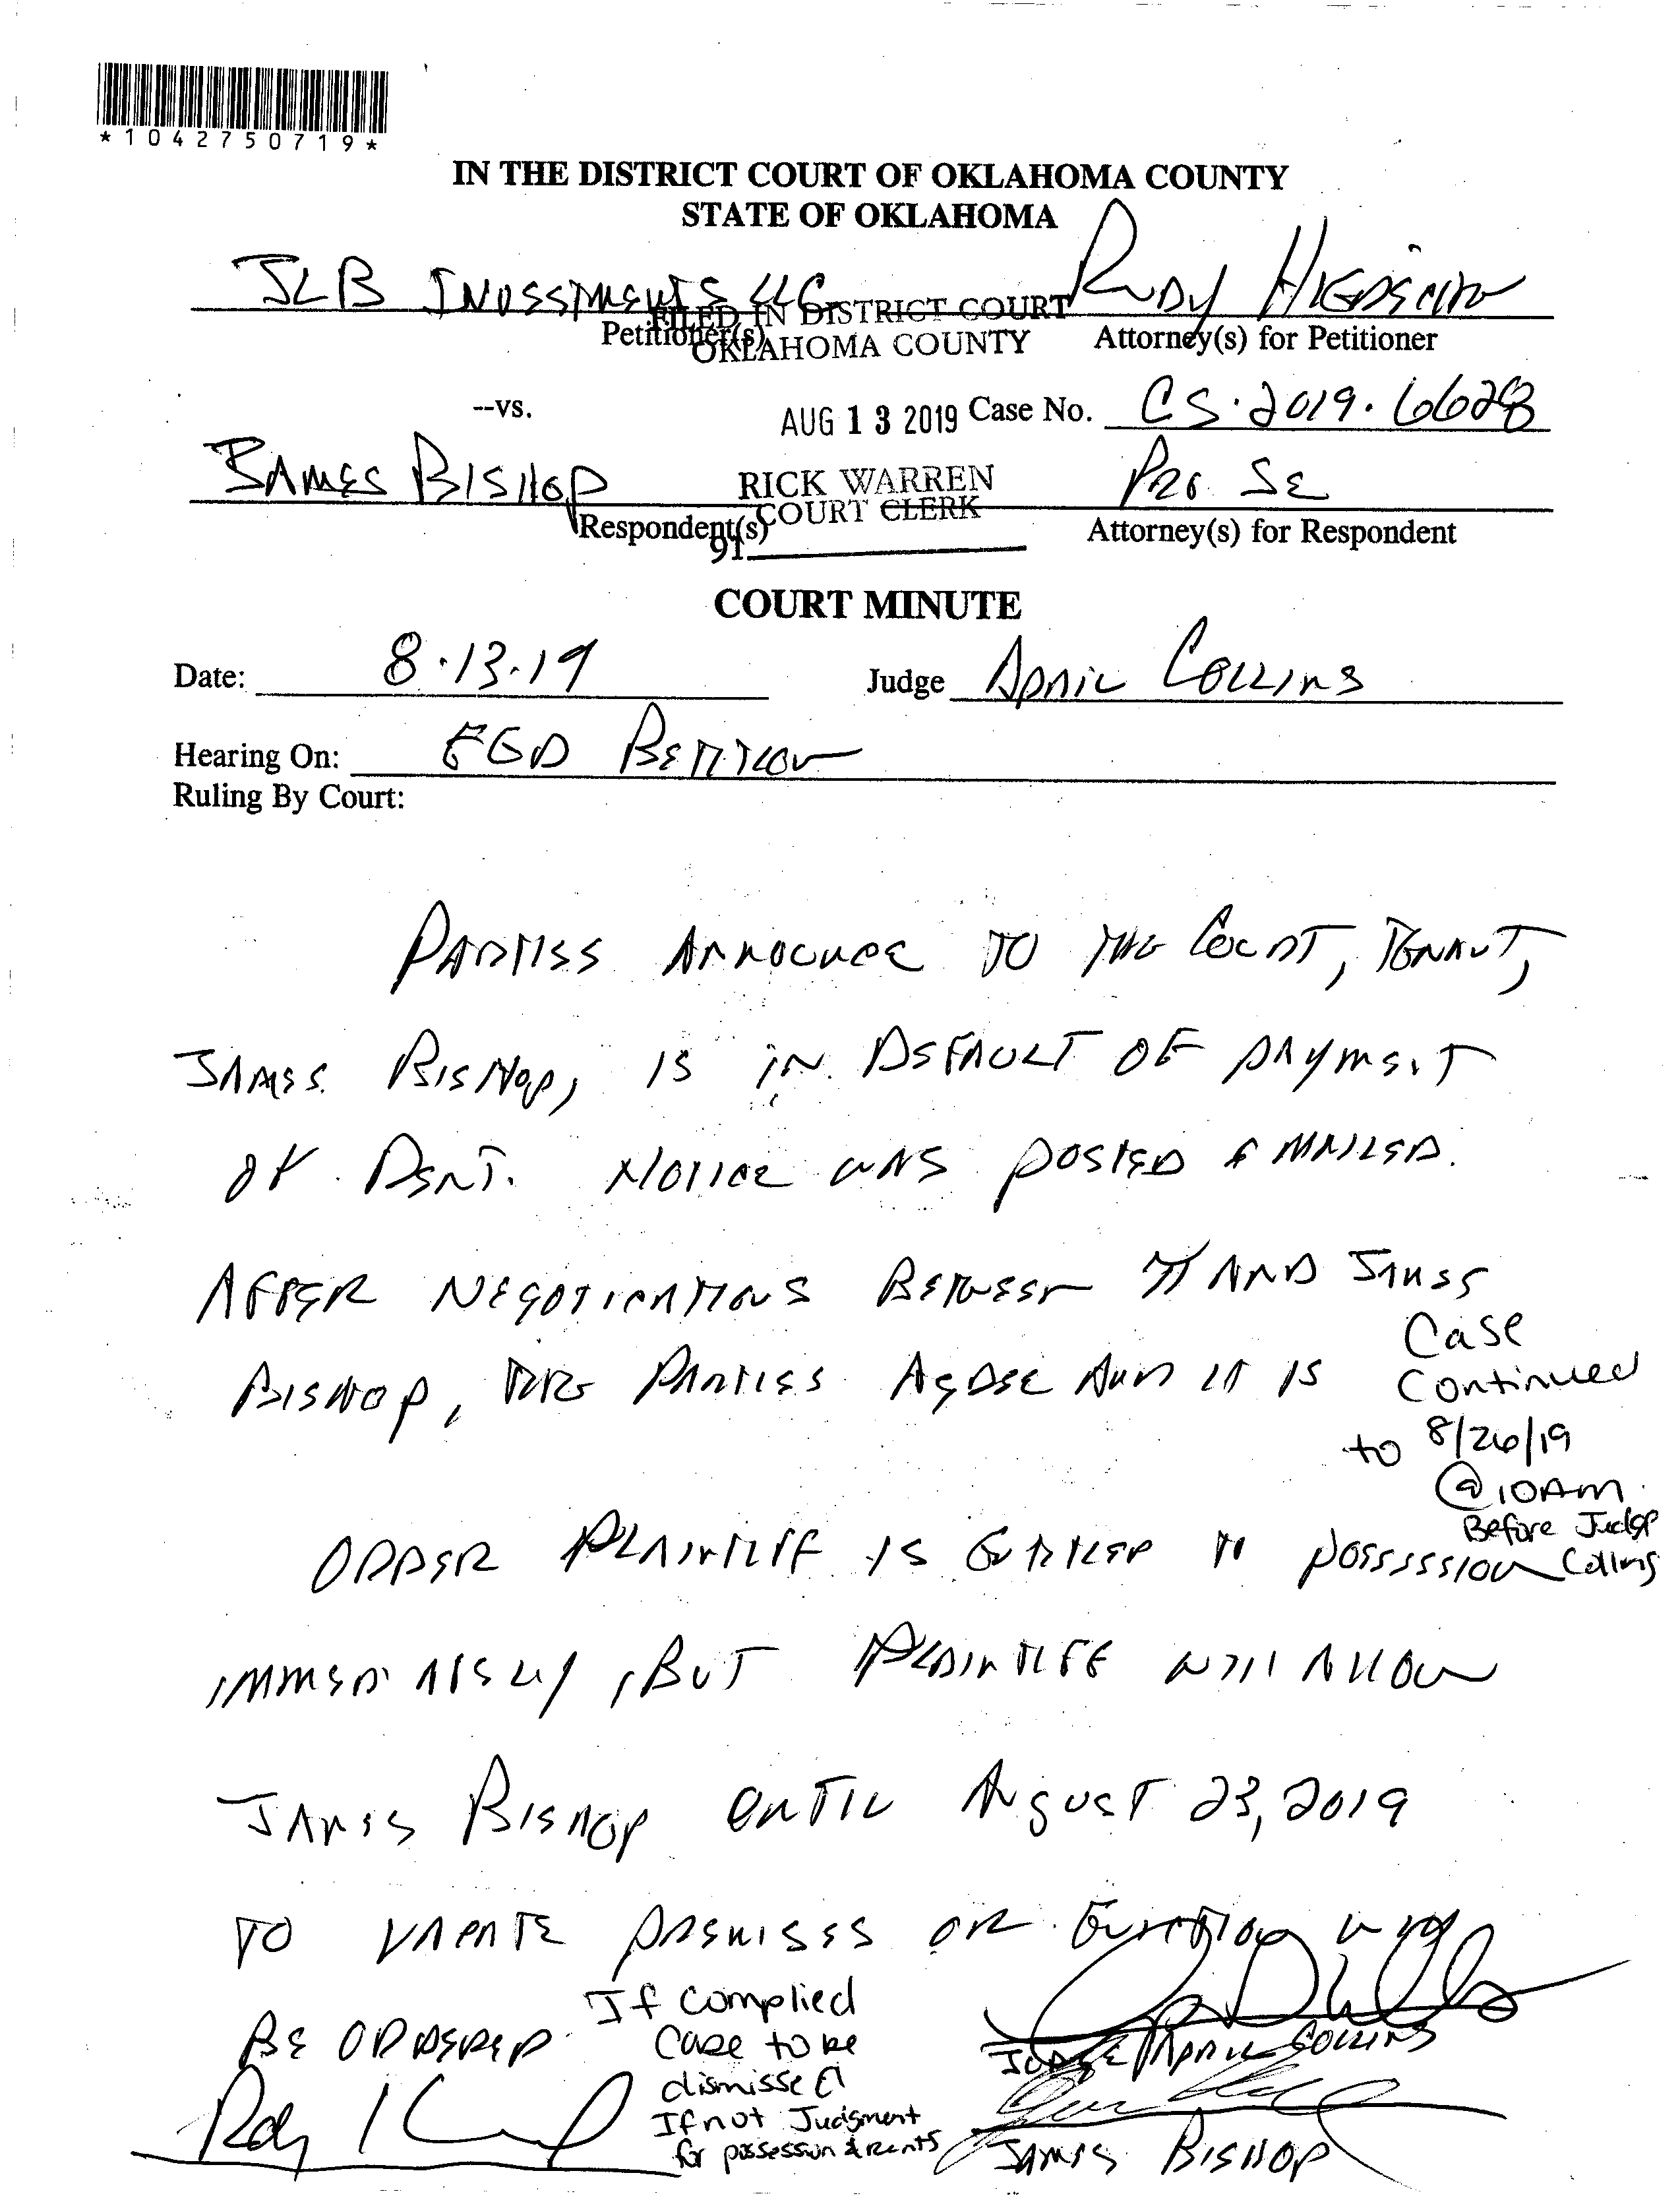 *1042750719*
IN THE DISTRICT COURT OF OKLAHOMA COUNTY
STATE OF OKLAHOMA
JLB INVESTMENTS LLC
RUDY
Petitioner(s)
Attorney(s) for Petitioner
FILED IN DISTRICT COURT
OKLAHOMA COUNTY
--vs.
AUG 13 2019
Case No. CS-2019-6628
JAMES BISHOP
RICK WARREN
COURT CLERK
PRO SE
Respondent(s)
Attorney(s) for Respondent
91
COURT MINUTE
Date: 8-13-19
Judge APRIL COLLINS
Hearing On: F&D PETITION
Ruling By Court:
PARTIES ANNOUNCE TO THE COURT, TENANT,
JAMES BISHOP, IS IN DEFAULT OF PAYMENT
OF RENT. NOTICE WAS POSTED & MAILED.
AFTER NEGOTIATIONS BETWEEN π AND JAMES
BISHOP, THE PARTIES AGREE AND IT IS
Case
Continued
to 8/26/19
@ 10AM
Before Judge
Collins
ORDER PLAINTIFF IS ENTITLED TO POSSESSION
IMMEDIATELY, BUT PLAINTIFF WILL ALLOW
JAMES BISHOP UNTIL AUGUST 23, 2019
TO VACATE PREMISES OR EVICTION WILL
BE ORDERED
If complied
Case to be
dismissed
If not Judgment
for possession & rents
JUDGE APRIL COLLINS
JAMES BISHOP